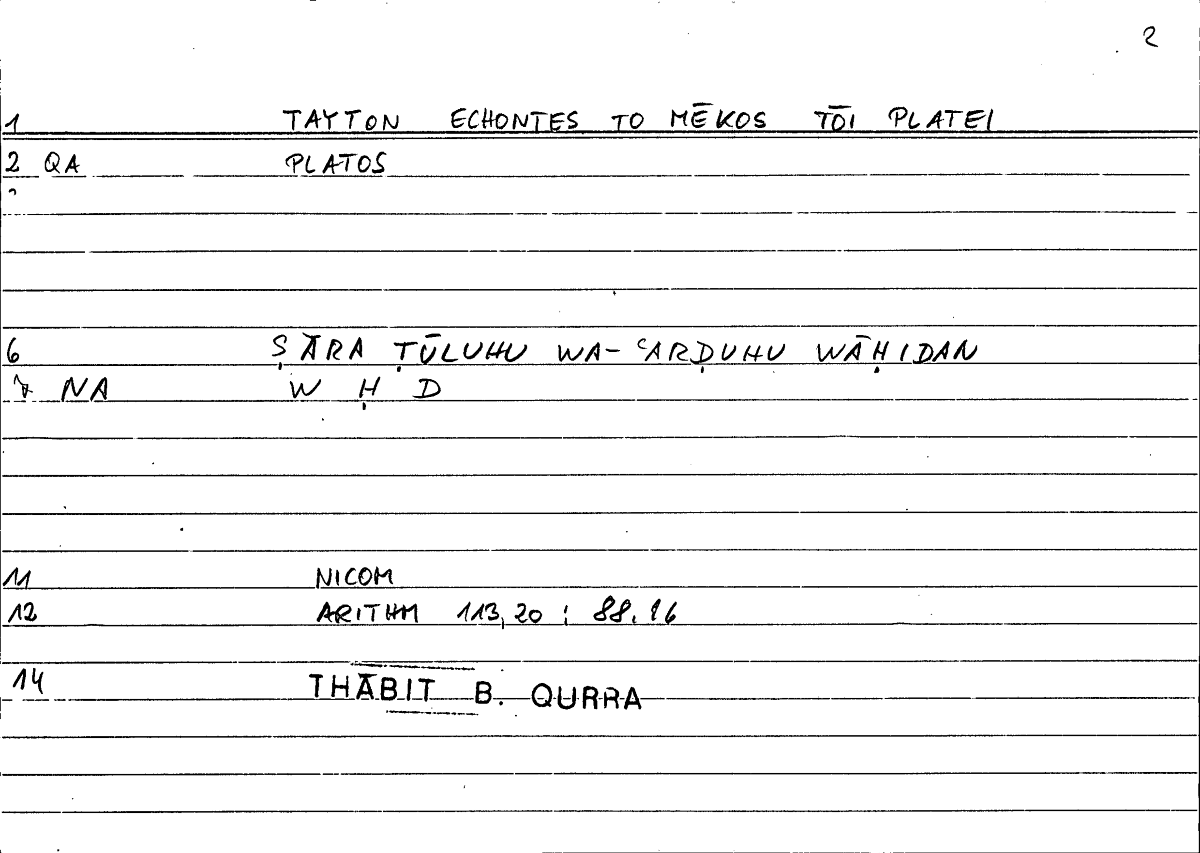 2
1 TAYTON ECHONTES TO MĒKOS TŌI PLATEI
2 QA PLATOS
6 ṢĀRA ṬŪLUHU WA-ʿARḌUHU WĀḤIDAN
NA W Ḥ D
11 NICOM
12 ARITHM 113,20 ; 88.16
14 THĀBIT B. QURRA